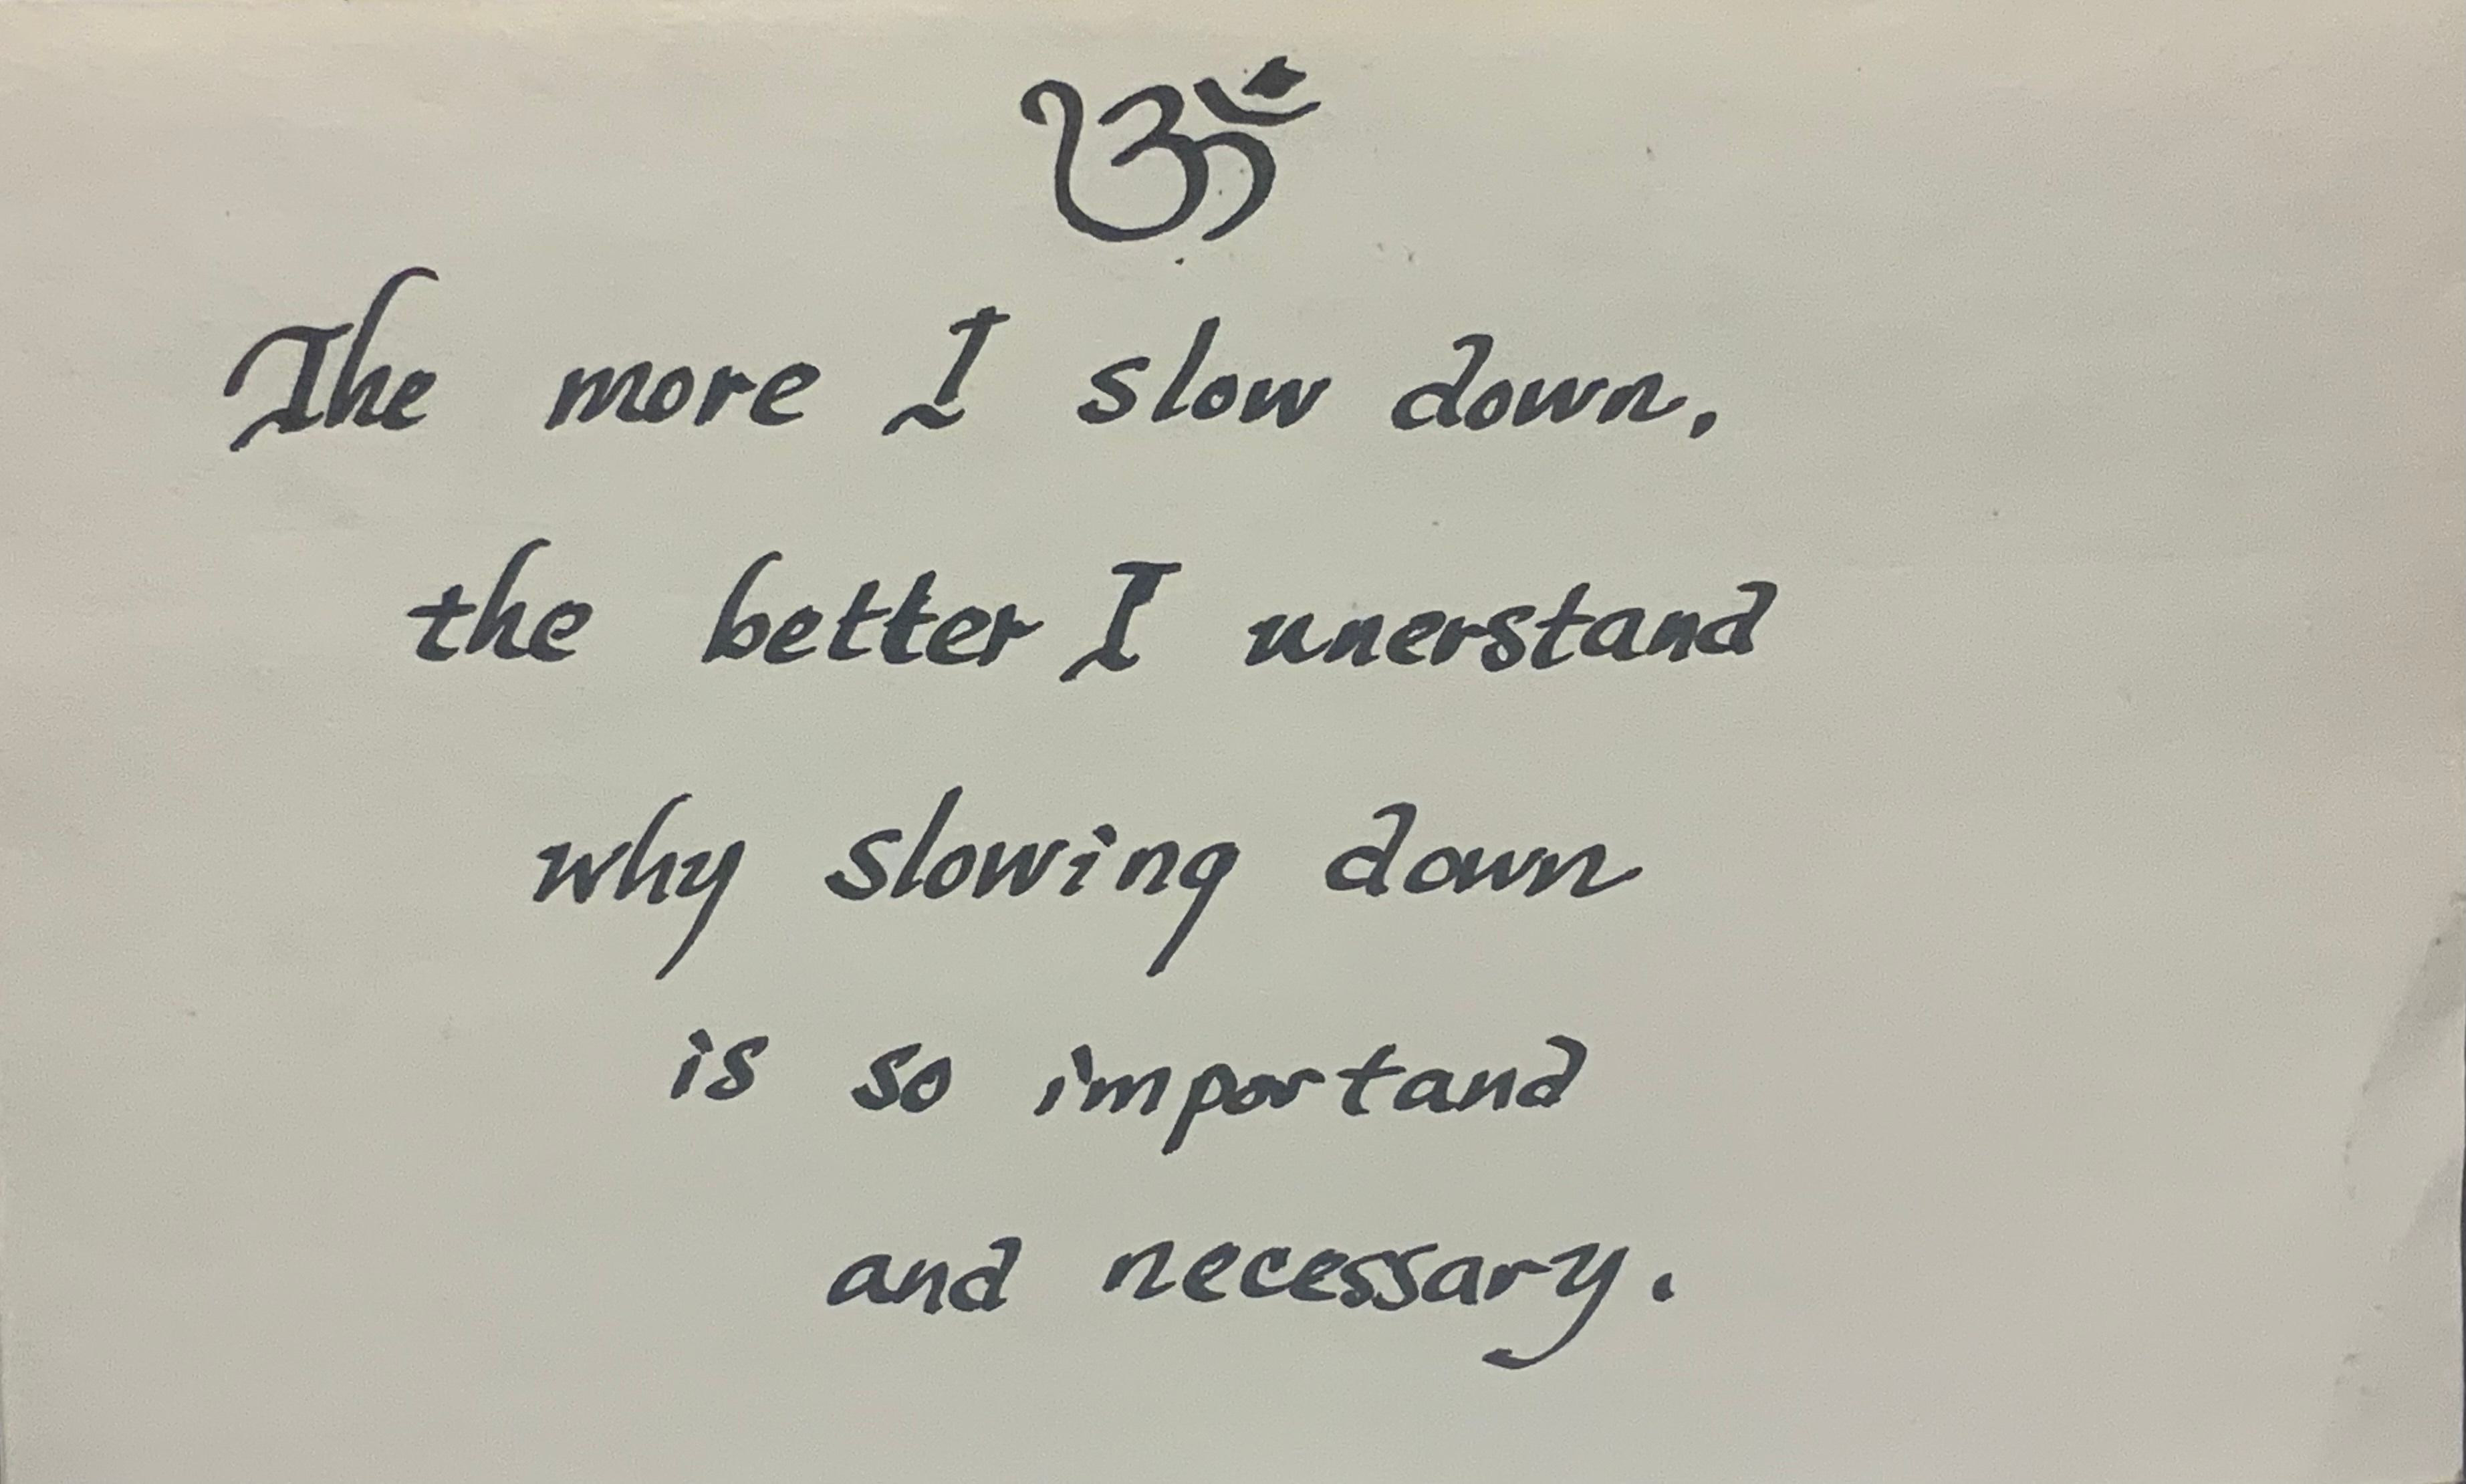 ॐ
The more I slow down,
the better I unerstand
why slowing down
is so importand
and necessary.